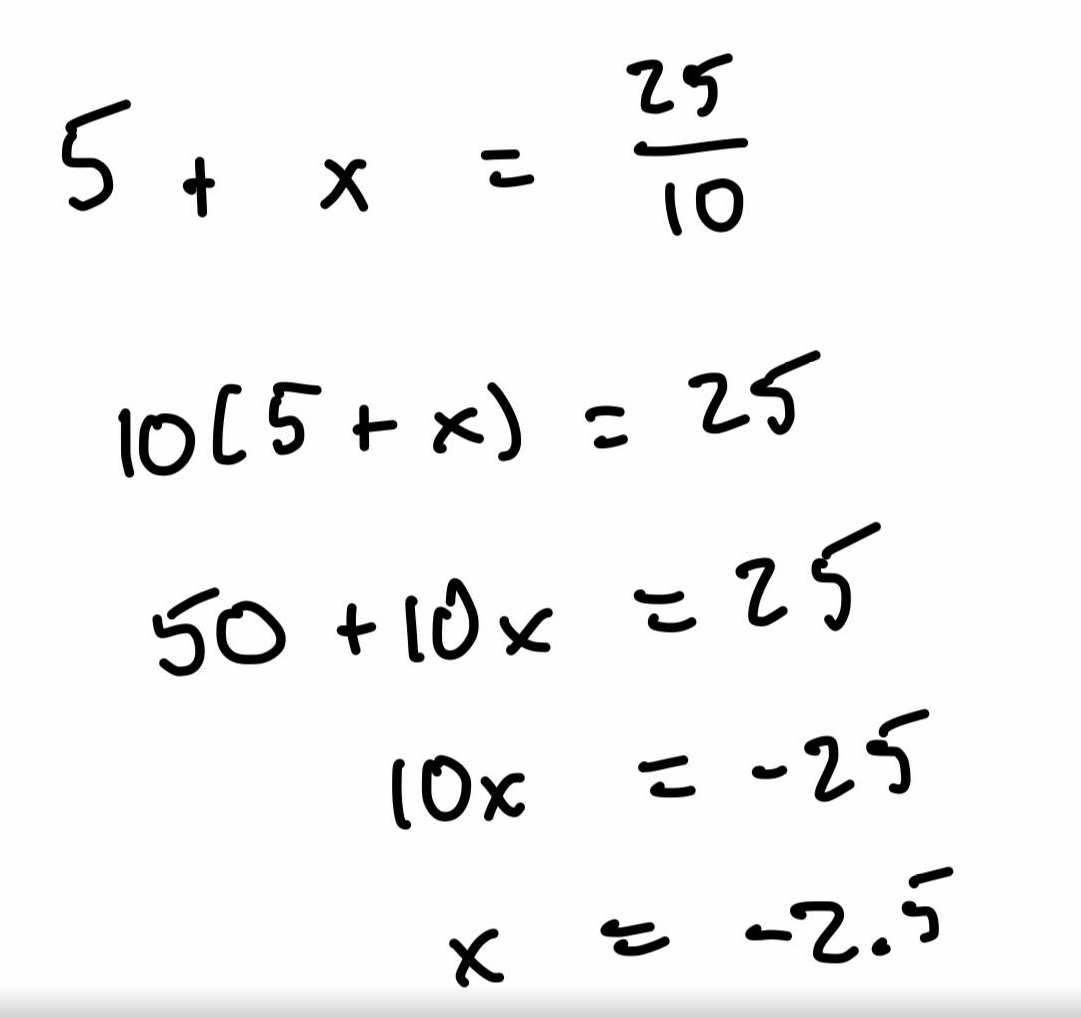 5 + x = 25/10
10(5 + x) = 25
50 + 10x = 25
10x = -25
x = -2.5